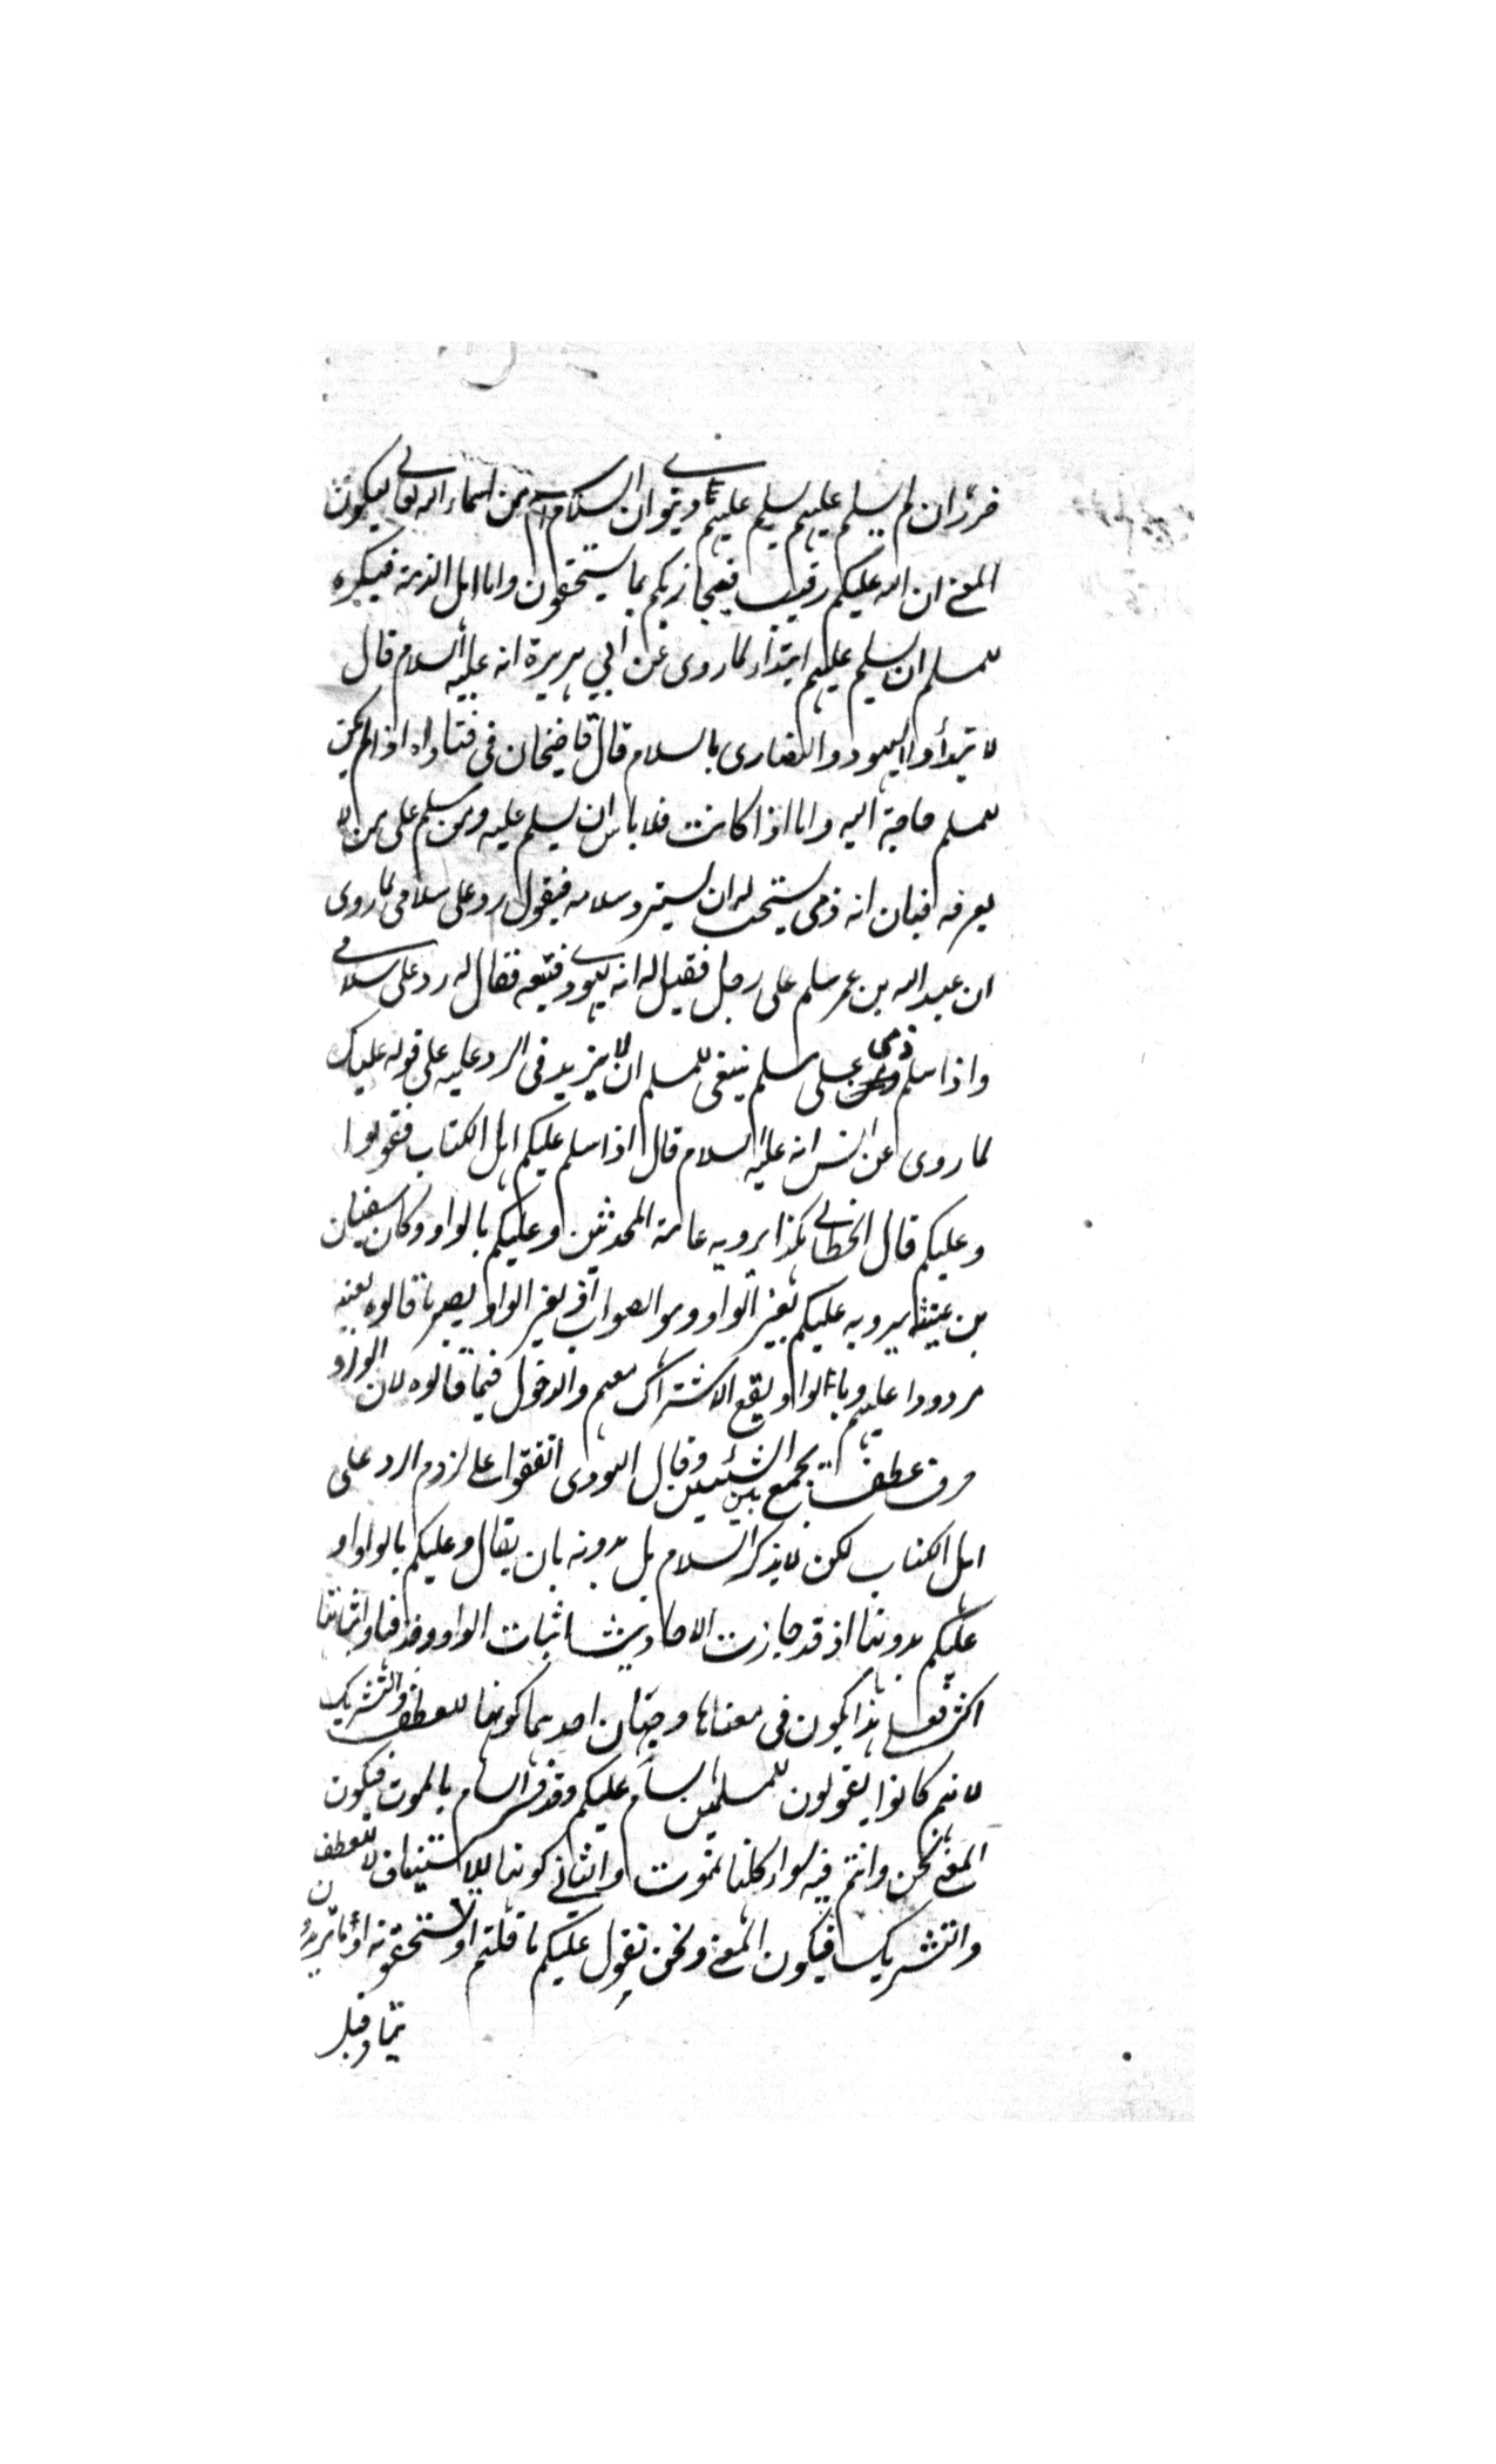 ضررا ان لم يسلم عليهم يسلم عليهم وينوى ان السلام اسم من اسماء الله تعالى ليكون
المعنى ان الله عليكم رقيب فيجازيكم بما يستحقون واما اهل الذمة فيكره
للمسلم ان يسلم عليهم ابتداء لما روى عن ابي هريرة انه عليه السلام قال
لا تبدأوا اليهود والنصارى بالسلام قال قاضيخان فى فتاواه اذا لم يكن
للمسلم حاجة اليه واما اذا كانت فلا باس ان يسلم عليه ومن سلم على من لا
يعرفه فبان انه ذمى يستحب له ان يسترد سلامه فيقول رد على سلامى لما روى
ان عبد الله بن عمر سلم على رجل فقيل له انه يهودى فتبعه فقال له رد على سلامى
واذا سلم ذمى على مسلم ينبغى للمسلم ان لا يزيد فى الرد عليه على قوله عليك
لما روى عن انس انه عليه السلام قال اذا سلم عليكم اهل الكتاب فقولوا
وعليكم قال الخطابى هكذا يرويه عامة المحدثين وعليكم بالواو وكان سفيان
بن عيينة يرويه عليكم بغير الواو وهو الصواب اذ بغير الواو يصير ما قالوه بعينه
مردودا عليهم وبالواو يقع الاشتراك معهم والدخول فيما قالوه لان الواو
حرف عطف يجمع بين الشيئين وقال النووى اتفقوا على لزوم الرد على
اهل الكتاب لكن لا يذكر السلام بل بدونه بان يقال وعليكم بالواو او
عليكم بدونها اذ قد جازت الاحاديث اثبات الواو وحذفها واثباتها
اكثر فعلى هذا يكون فى معناها وجهان احدهما كونها للعطف والتشريك
لانهم كانوا يقولون للمسلمين السام عليكم وقد فسر السام بالموت فيكون
المعنى نحن وانتم فيه سواء كلنا نموت والثانى كونها للاستيناف لا للعطف
والتشريك فيكون المعنى ونحن نقول عليكم ما قلتم او لا تستحقونه او ما تريدون
بنا وقيل